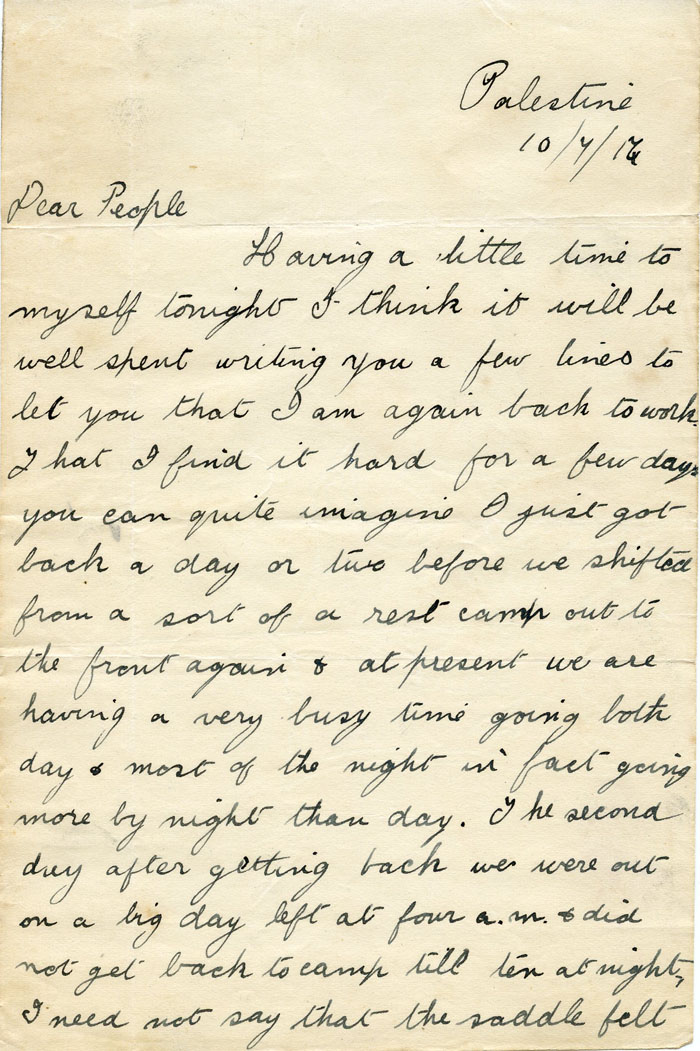 Palestine
10/7/17
Dear People
Having a little time to
myself tonight I think it will be
well spent writing you a few lines to
let you that I am again back to work.
That I find it hard for a few days
you can quite imagine I just got
back a day or two before we shifted
from a sort of a rest camp out to
the front again & at present we are
having a very busy time going both
day & most of the night in fact going
more by night than day. The second
day after getting back we were out
on a big day left at four a.m. & did
not get back to camp till ten at night,
I need not say that the saddle felt